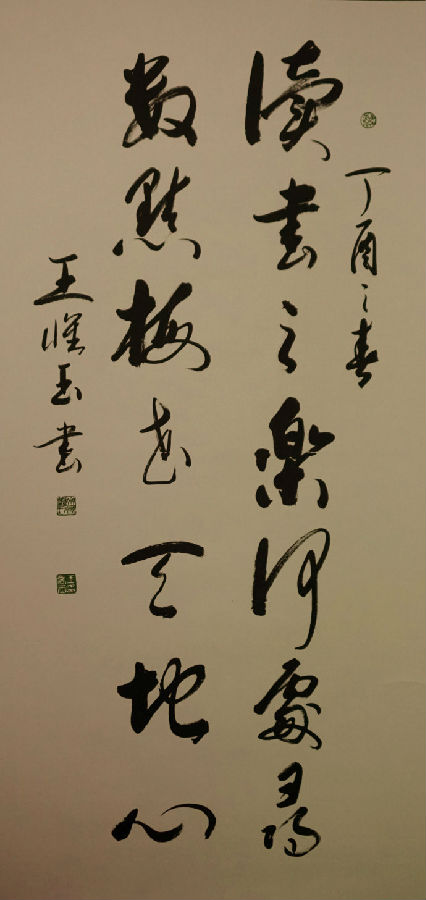 丁酉之春
讀書之樂何處尋
數點梅花天地心
王 玉書